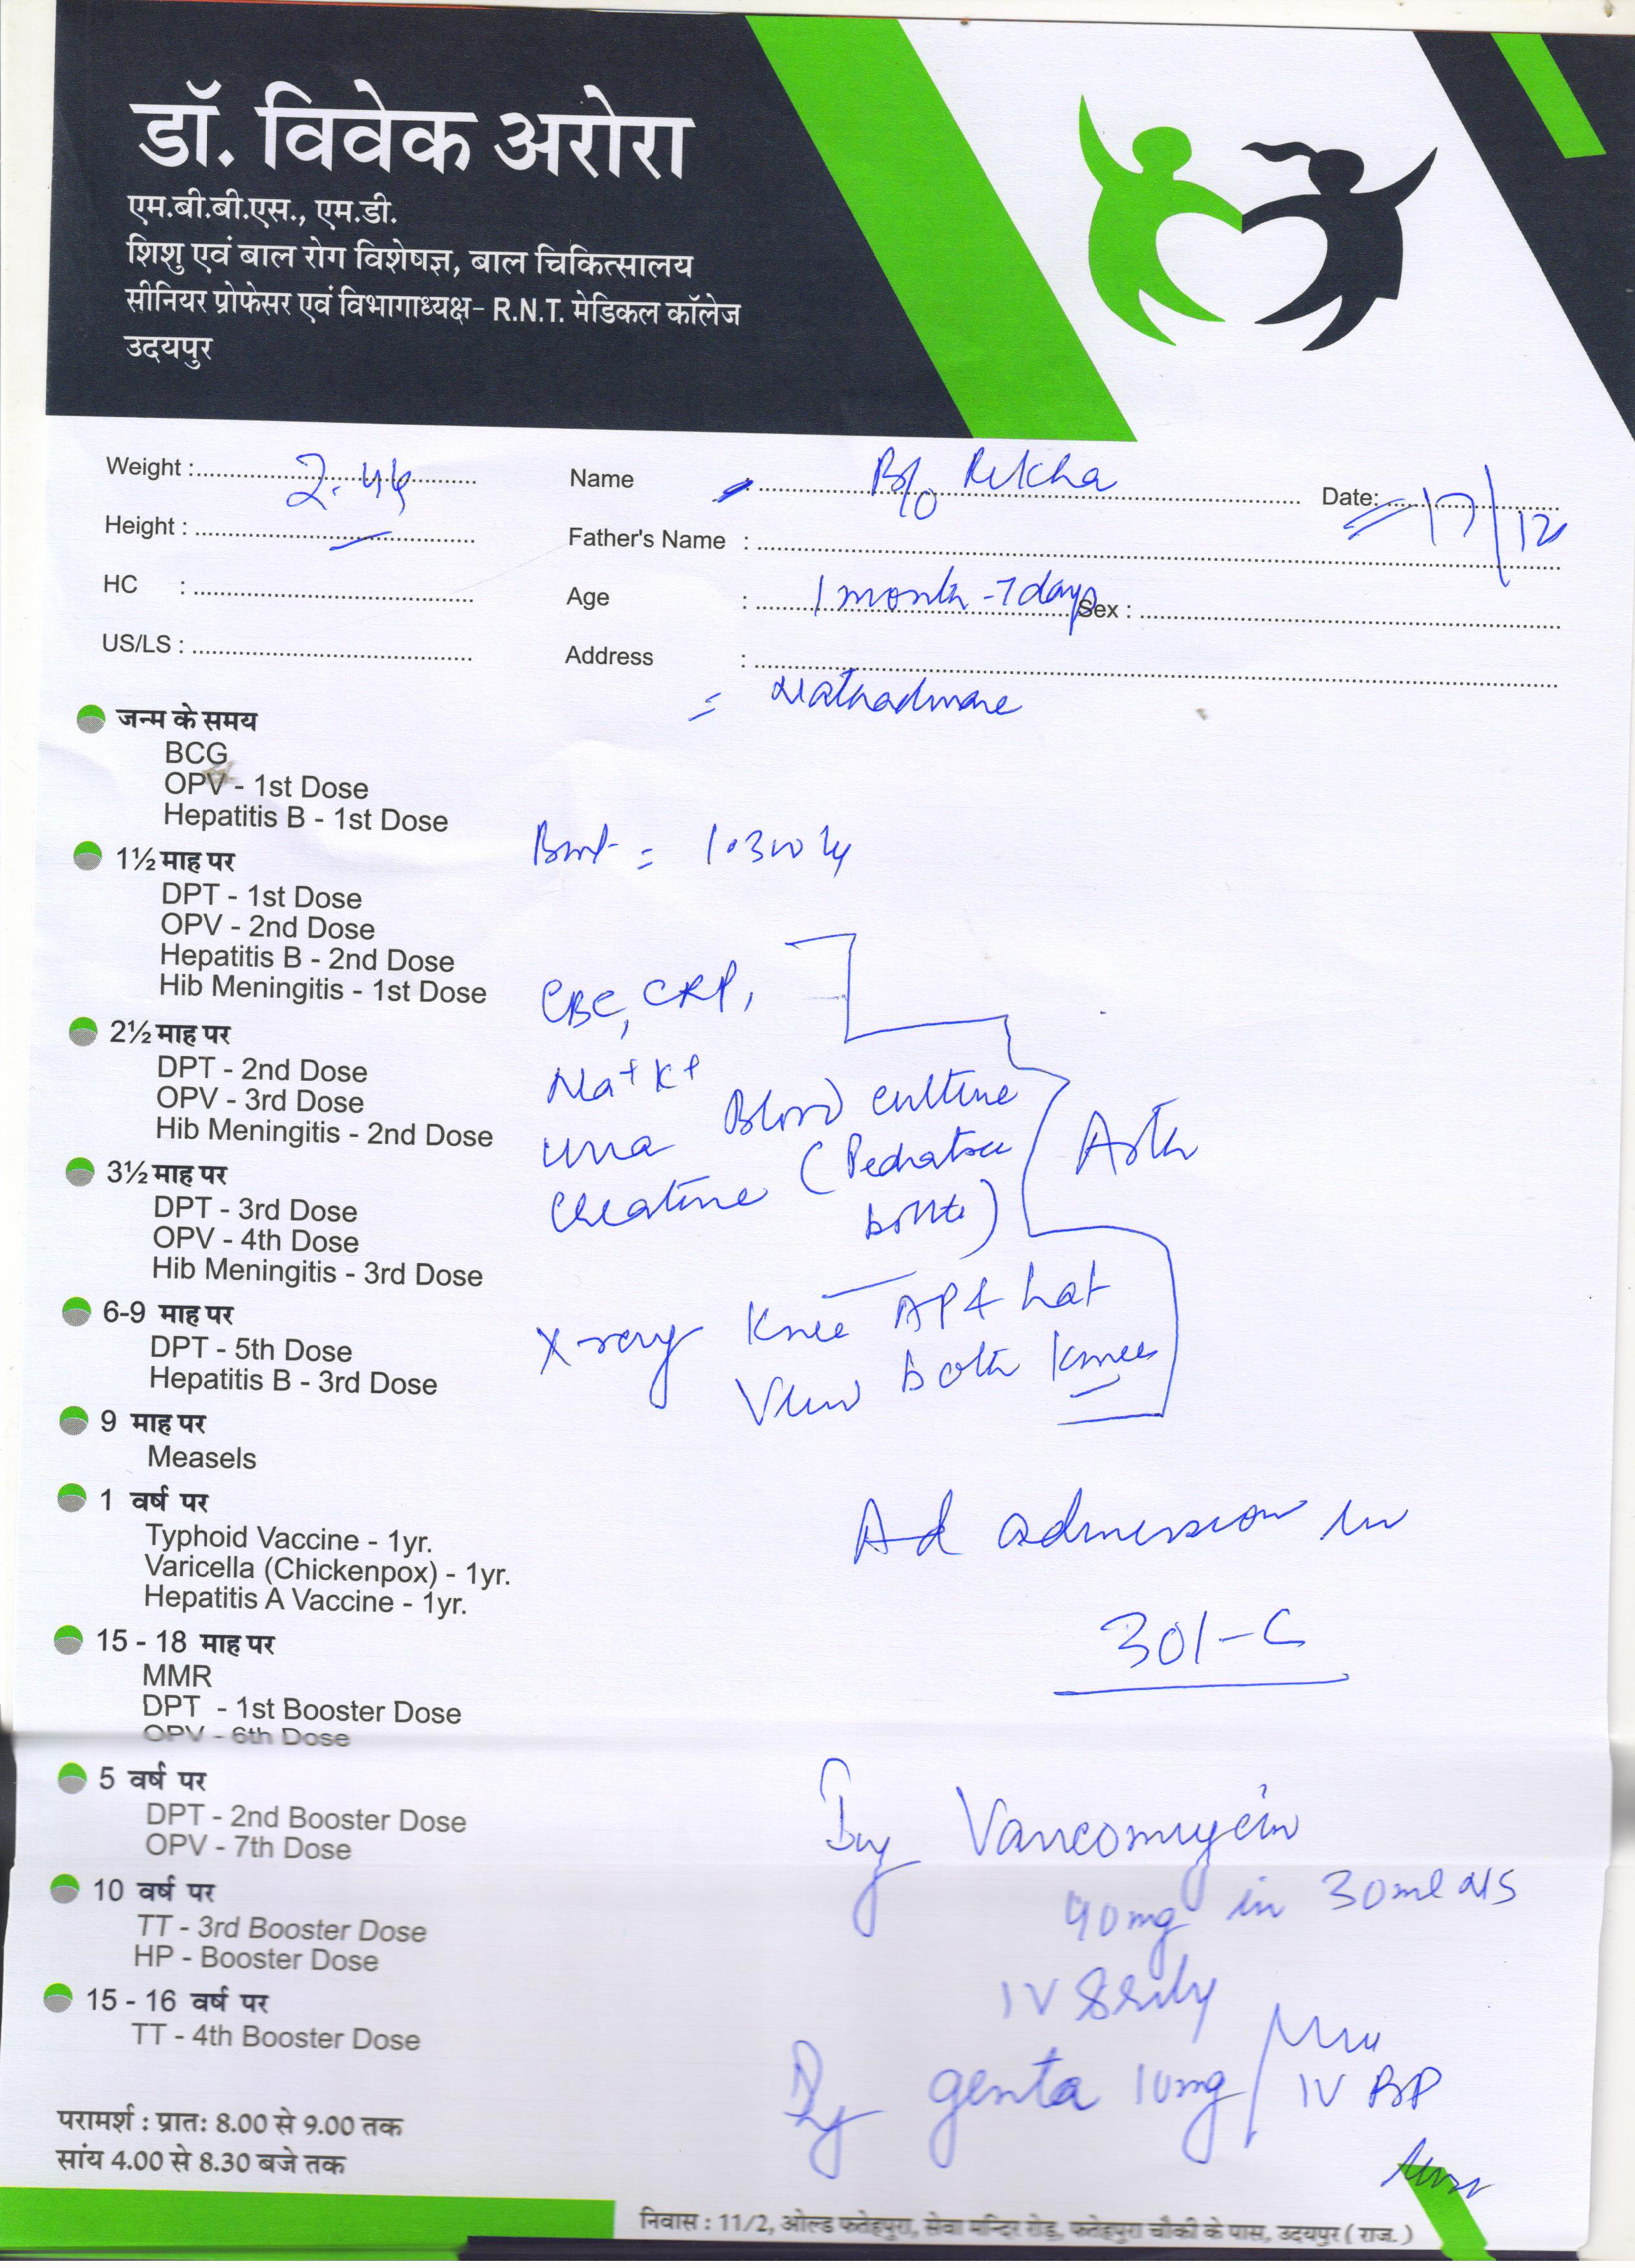 डॉ. विवेक अरोरा
एम.बी.बी.एस., एम.डी.
शिशु एवं बाल रोग विशेषज्ञ, बाल चिकित्सालय
सीनियर प्रोफेसर एवं विभागाध्यक्ष- R.N.T. मेडिकल कॉलेज
उदयपुर
Weight : 2.44 Name B/o Rekha Date: 17/12
Height : Father's Name :
HC : Age : 1 month - 7 days Sex :
US/LS : Address :
= Nathadware
जन्म के समय
BCG
OPV - 1st Dose
Hepatitis B - 1st Dose
1½ माह पर
DPT - 1st Dose
OPV - 2nd Dose
Hepatitis B - 2nd Dose
Hib Meningitis - 1st Dose
2½ माह पर
DPT - 2nd Dose
OPV - 3rd Dose
Hib Meningitis - 2nd Dose
3½ माह पर
DPT - 3rd Dose
OPV - 4th Dose
Hib Meningitis - 3rd Dose
6-9 माह पर
DPT - 5th Dose
Hepatitis B - 3rd Dose
9 माह पर
Measels
1 वर्ष पर
Typhoid Vaccine - 1yr.
Varicella (Chickenpox) - 1yr.
Hepatitis A Vaccine - 1yr.
15 - 18 माह पर
MMR
DPT - 1st Booster Dose
OPV - 6th Dose
5 वर्ष पर
DPT - 2nd Booster Dose
OPV - 7th Dose
10 वर्ष पर
TT - 3rd Booster Dose
HP - Booster Dose
15 - 16 वर्ष पर
TT - 4th Booster Dose
परामर्श : प्रातः 8.00 से 9.00 तक
सांय 4.00 से 8.30 बजे तक
= 1.300
CBC, CRP,
Na+ K+
Blood culture
urea
(Pediatric
creatine
bottle)
X-ray Knee AP & Lat
View both knees
Ad admission in
301-C
Inj Vancomycin
40mg in 30ml NS
IV 8
Inj genta 10mg
IV
निवास : 11/2, ओल्ड फतेहपुरा, सेवा मन्दिर रोड़, फतेहपुरा चौकी के पास, उदयपुर ( राज. )